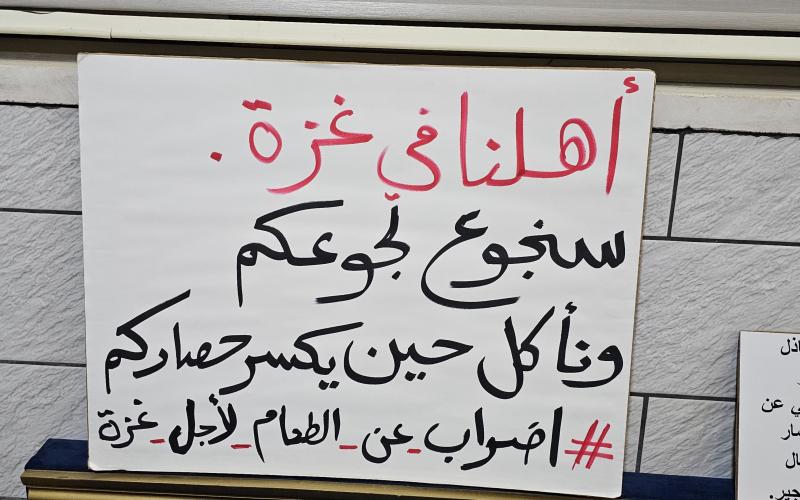 أهلنا في غزة.
سنجوع لجوعكم
ونأكل حين يكسر حصاركم
#اضراب_عن_الطعام_لأجل_غزة
اذل
ي عن
سار
ال
جير.